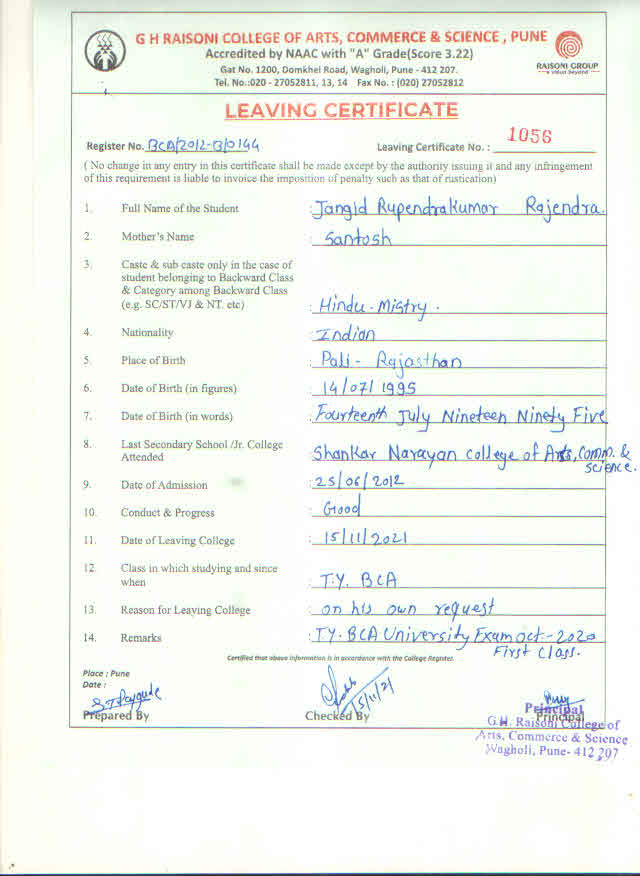 G H RAISONI COLLEGE OF ARTS, COMMERCE & SCIENCE , PUNE
Accredited by NAAC with "A" Grade(Score 3.22)
Gat No. 1200, Domkhel Road, Wagholi, Pune - 412 207.
Tel. No.:020 - 27052811, 13, 14 Fax No. : (020) 27052812
RAISONI GROUP
a vision beyond
LEAVING CERTIFICATE
Register No. BCA/2012-B/0144 Leaving Certificate No. : 1056
( No change in any entry in this certificate shall be made except by the authority issuing it and any infringement
of this requirement is liable to invoice the imposition of penalty such as that of rustication)
1. Full Name of the Student : Jangid Rupendrakumar Rajendra.
2. Mother's Name : Santosh
3. Caste & sub caste only in the case of
student belonging to Backward Class
& Category among Backward Class
(e.g. SC/ST/VJ & NT. etc) : Hindu - Mistry .
4. Nationality : Indian
5. Place of Birth : Pali - Rajasthan
6. Date of Birth (in figures) : 14/07/1995
7. Date of Birth (in words) : Fourteenth July Nineteen Ninety Five
8. Last Secondary School /Jr. College
Attended : Shankar Narayan college of Arts, Comm. &
science.
9. Date of Admission : 25/06/2012
10. Conduct & Progress : Good
11. Date of Leaving College : 15/11/2021
12. Class in which studying and since
when : T.Y. BCA
13. Reason for Leaving College : on his own request
14. Remarks : T.Y. BCA University Exam Oct - 2020
First Class.
Certified that above information is in accordance with the College Register.
Place : Pune
Date :
15/11/21
Prepared By Checked By Principal
Principal
G.H. Raisoni College of
Arts, Commerce & Science
Wagholi, Pune- 412 207